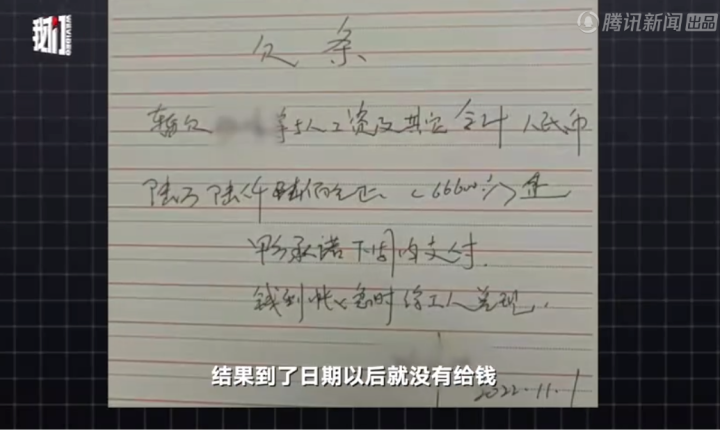 我们
WEVIDEO
腾讯新闻 出品
欠条
暂欠 等5人工资及其它合计人民币
陆万陆仟陆佰元正（66600元）整
甲方承诺下周内支付.
钱到账及时给工人兑现.
结果到了日期以后就没有给钱
2022.11.1